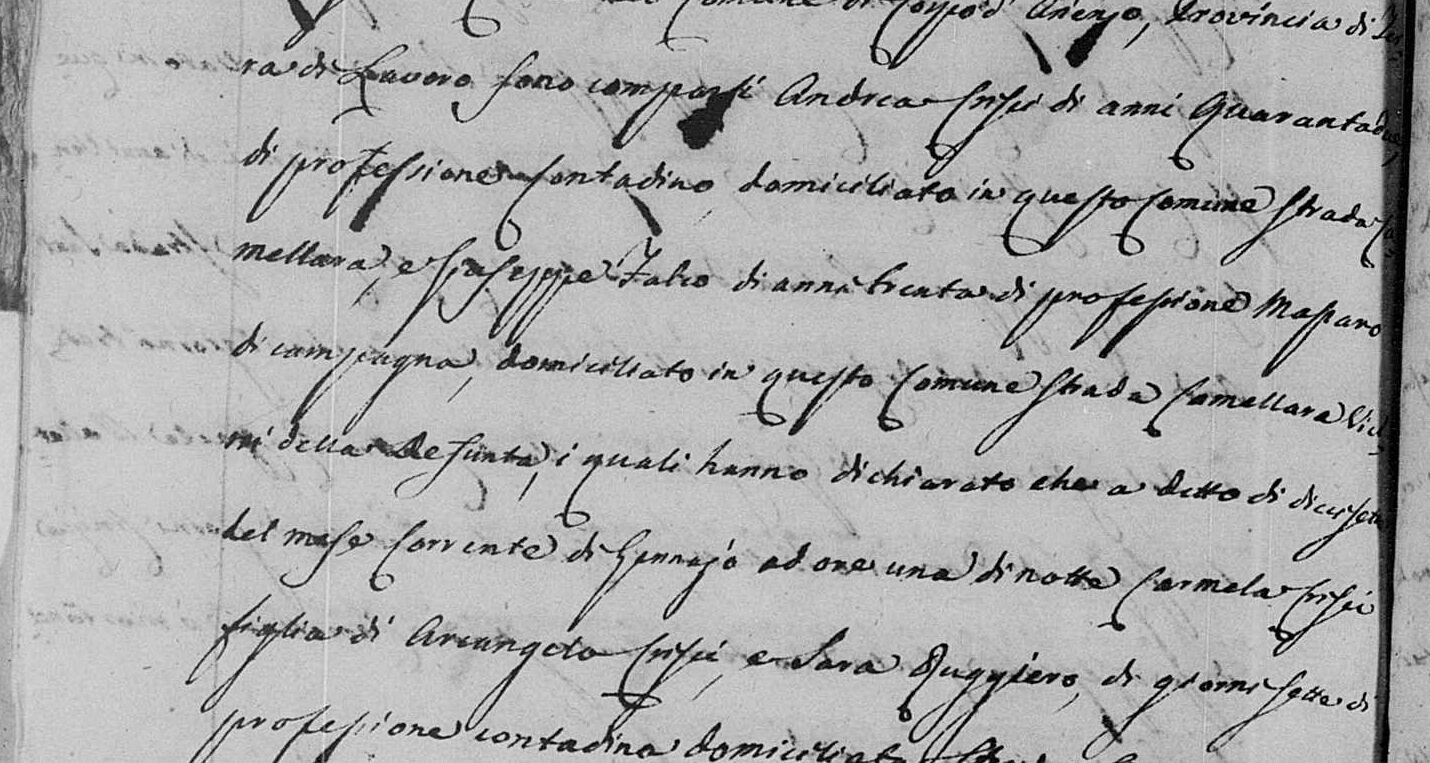 Comune di Corpo d' Arienzo, Provincia di Ter-
ra di Lavoro sono comparsi Andrea Crisci di anni Quarantadue,
di professione contadino domiciliato in questo Comune Strada Ca-
mellara, e Giuseppe Falco di anni trenta di professione Massaro
di campagna, domiciliato in questo Comune Strada Camellara Vici-
ni della Defunta, i quali hanno dichiarato che a detto di diciasette
del mese Corrente di Gennajo ad ore una di notte Carmela Crisci
figlia di Arcangelo Crisci, e Sara Ruggiero, di giorni sette di
professione contadina domiciliata